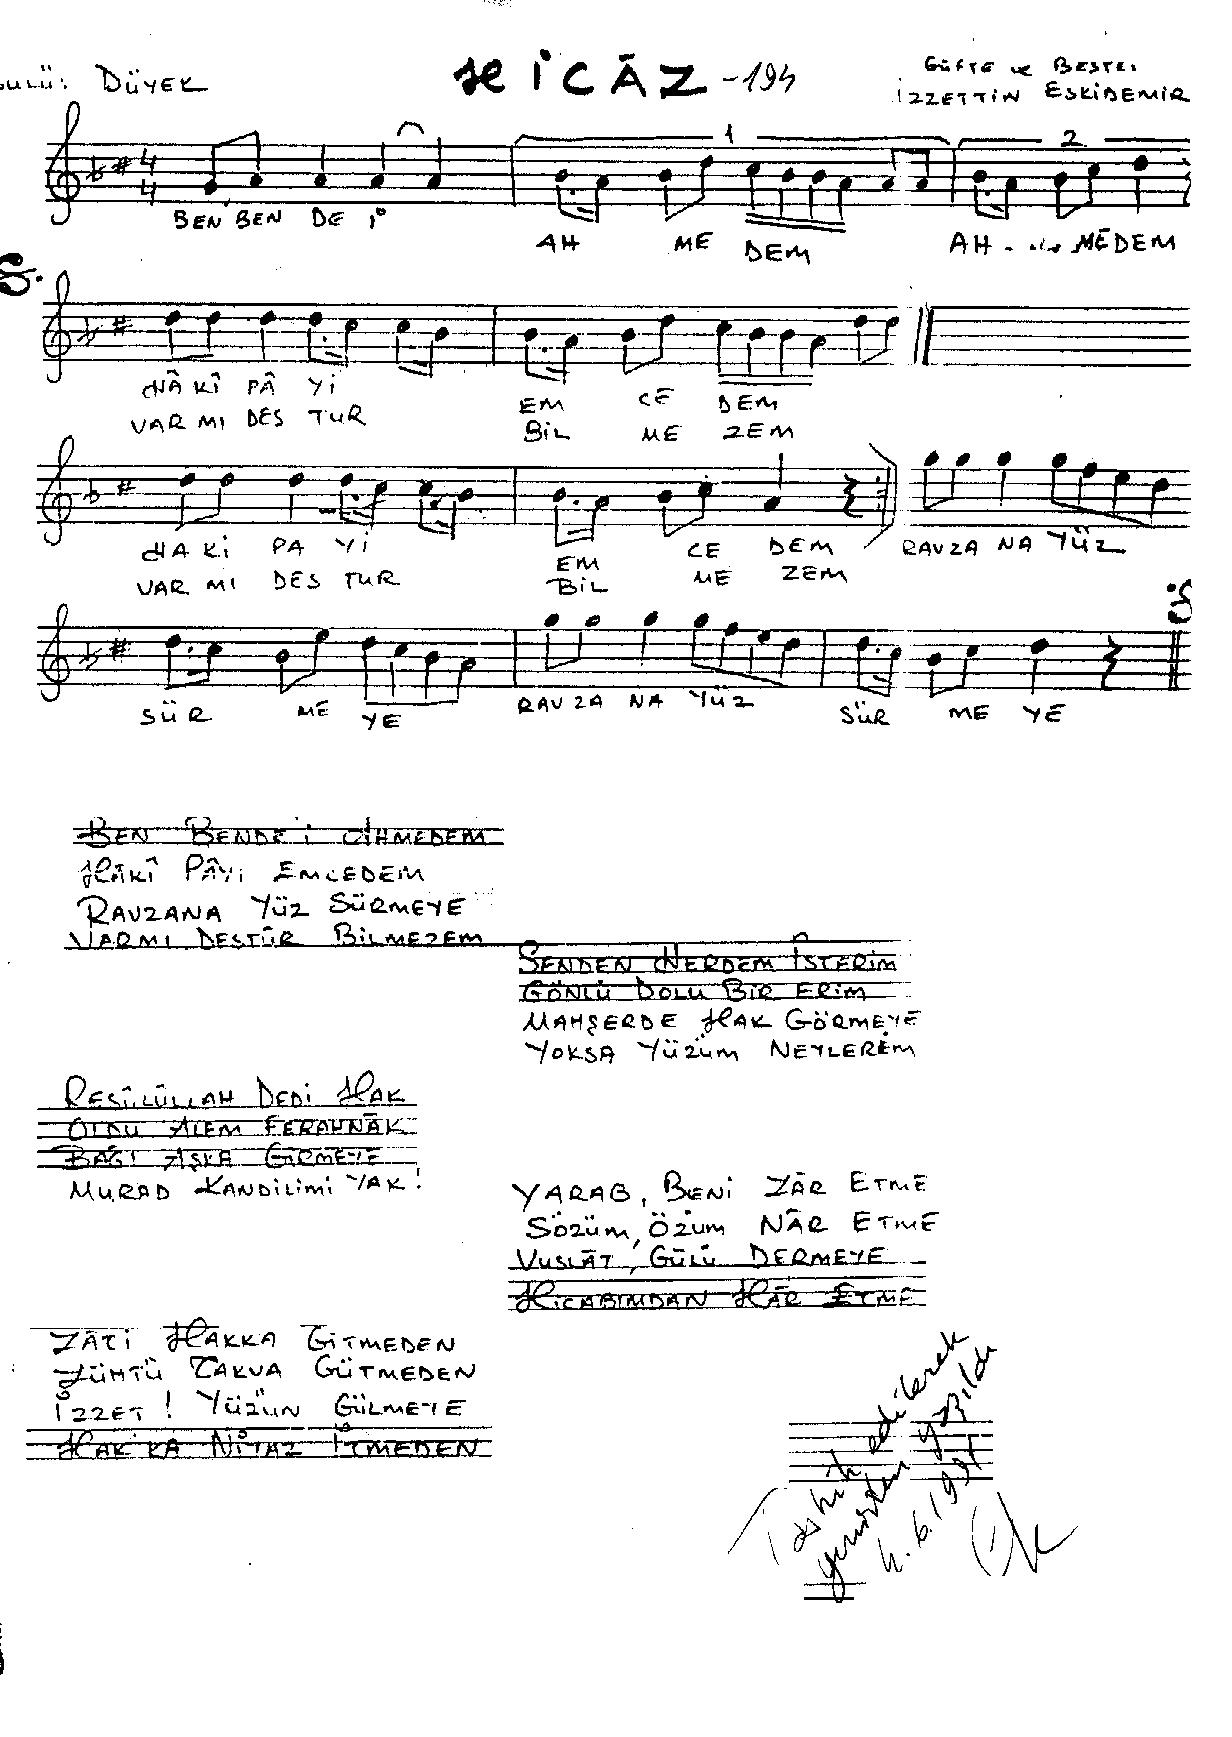 DÜYEK
HİCÂZ -194
GÜFTE ve BESTE:
İZZETTİN ESKİDEMİR
4
4
1
2
BEN BEN DE İ
AH ME DEM
AH MEDEM
HÂ KÎ PÂ Yİ EM CE DEM
VAR MI DES TUR BİL ME ZEM
HA Kİ PA Yİ EM CE DEM RAVZA NA YÜZ
VAR MI DES TUR BİL ME ZEM
SÜR ME YE RAVZA NA YÜZ SÜR ME YE
BEN BENDE'İ AHMEDEM
HÂKÎ PÂYİ EMCEDEM
RAVZANA YÜZ SÜRMEYE
VARMI DESTÛR BİLMEZEM
SENDEN HERDEM İSTERİM
GÖNLÜ DOLU BİR ERİM
MAHŞERDE HAK GÖRMEYE
YOKSA YÜZÜM NEYLERİM
RESÛLÜLLAH DEDİ HAK
OLDU ALEM FERAHNÂK
BAĞI AŞKA GİRMEYE
MURAD KANDİLİMİ YAK!
YARAB, BENİ ZÂR ETME
SÖZÜM, ÖZÜM NÂR ETME
VUSLÂT, GÜLÜ DERMEYE
HİCABIMDAN HÂR ETME
ZÂTİ HAKKA GİTMEDEN
ZÜHTÜ TAKVA GÜTMEDEN
İZZET! YÜZÜN GÜLMEYE
HAK'KA NİYAZ İTMEDEN
Tashih edilerek
yeniden yazıldı
4.6.1991